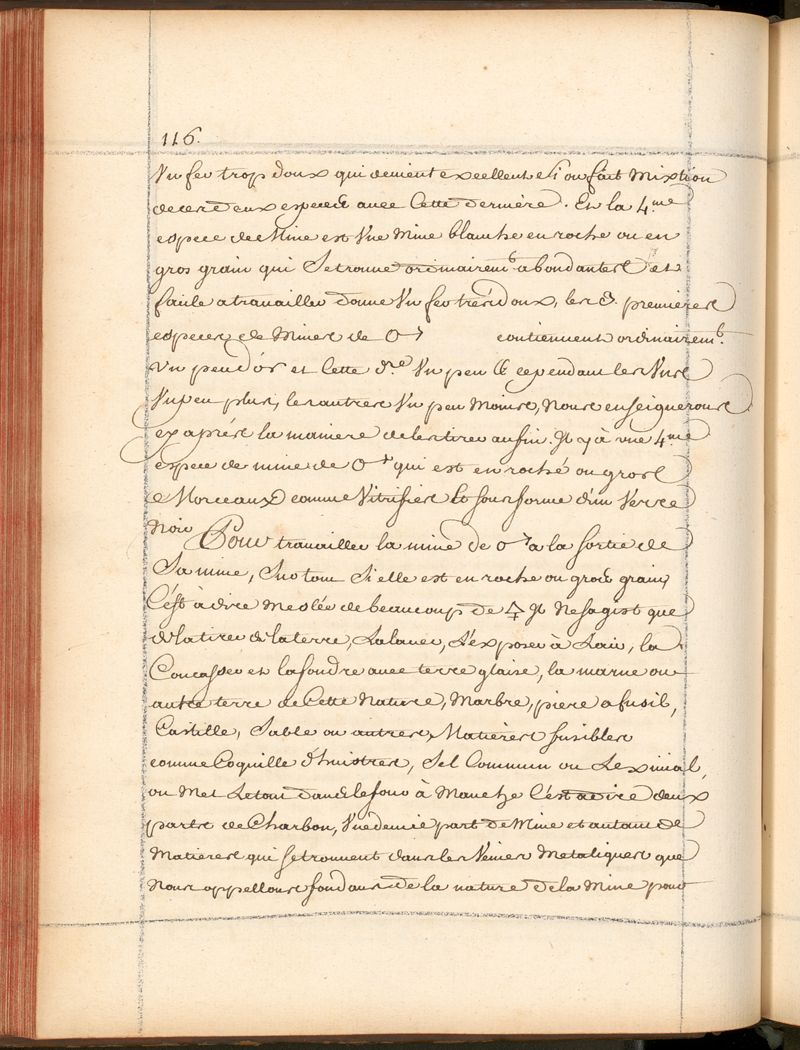 116.
Un fer trop doux qui devient excellent si on fait Mixtion
de ces deux especes avec Cette derniere. Et la 4.me
espece de Mine est Une Mine blanche en roche ou en
gros grain qui Se trouve ordinairem.t abondantes et
facile a travailler donne Un fer tres doux, les 3. premieres
especes de Mines de ♂ contiennent ordinairem.t
un peu d'or et Cette d.re Un peu cependant les Unes
Un peu plus, les autres Un peu Moins, Nous enseignerons
cy apres la maniere de les tirer au fin. Il y à une 4.me
espece de mine de ♂ qui est en roché ou gros
Morceaux comme Vitrifies et sous forme d'un Verre
Noir Pour travailler la mine de ♂ a la sortie de
Sa mine, Surtout Si elle est en roche ou gros grain,
C'est à dire Meslée de beaucoup de 🜍 Il Ne sagist que
de la tirer de la terre, La laver, L'exposer à L'air, la
Concasser et la fondre avec terre glaise, la marne ou
autre terre de Cette Nature, Marbre, piere a fusil,
Castille, Sable ou autres Matieres fusibles
comme Coquille d'huistres, Sel Commun ou Lexivial,
on Met Le tout dans le four à Manche C'est a dire deux
parts de Charbon, Une demie part de Mine et autant de
Matieres qui se trouvent dans les Veines Metaliques que
Nous appellons fondans de la nature de la Mine pour